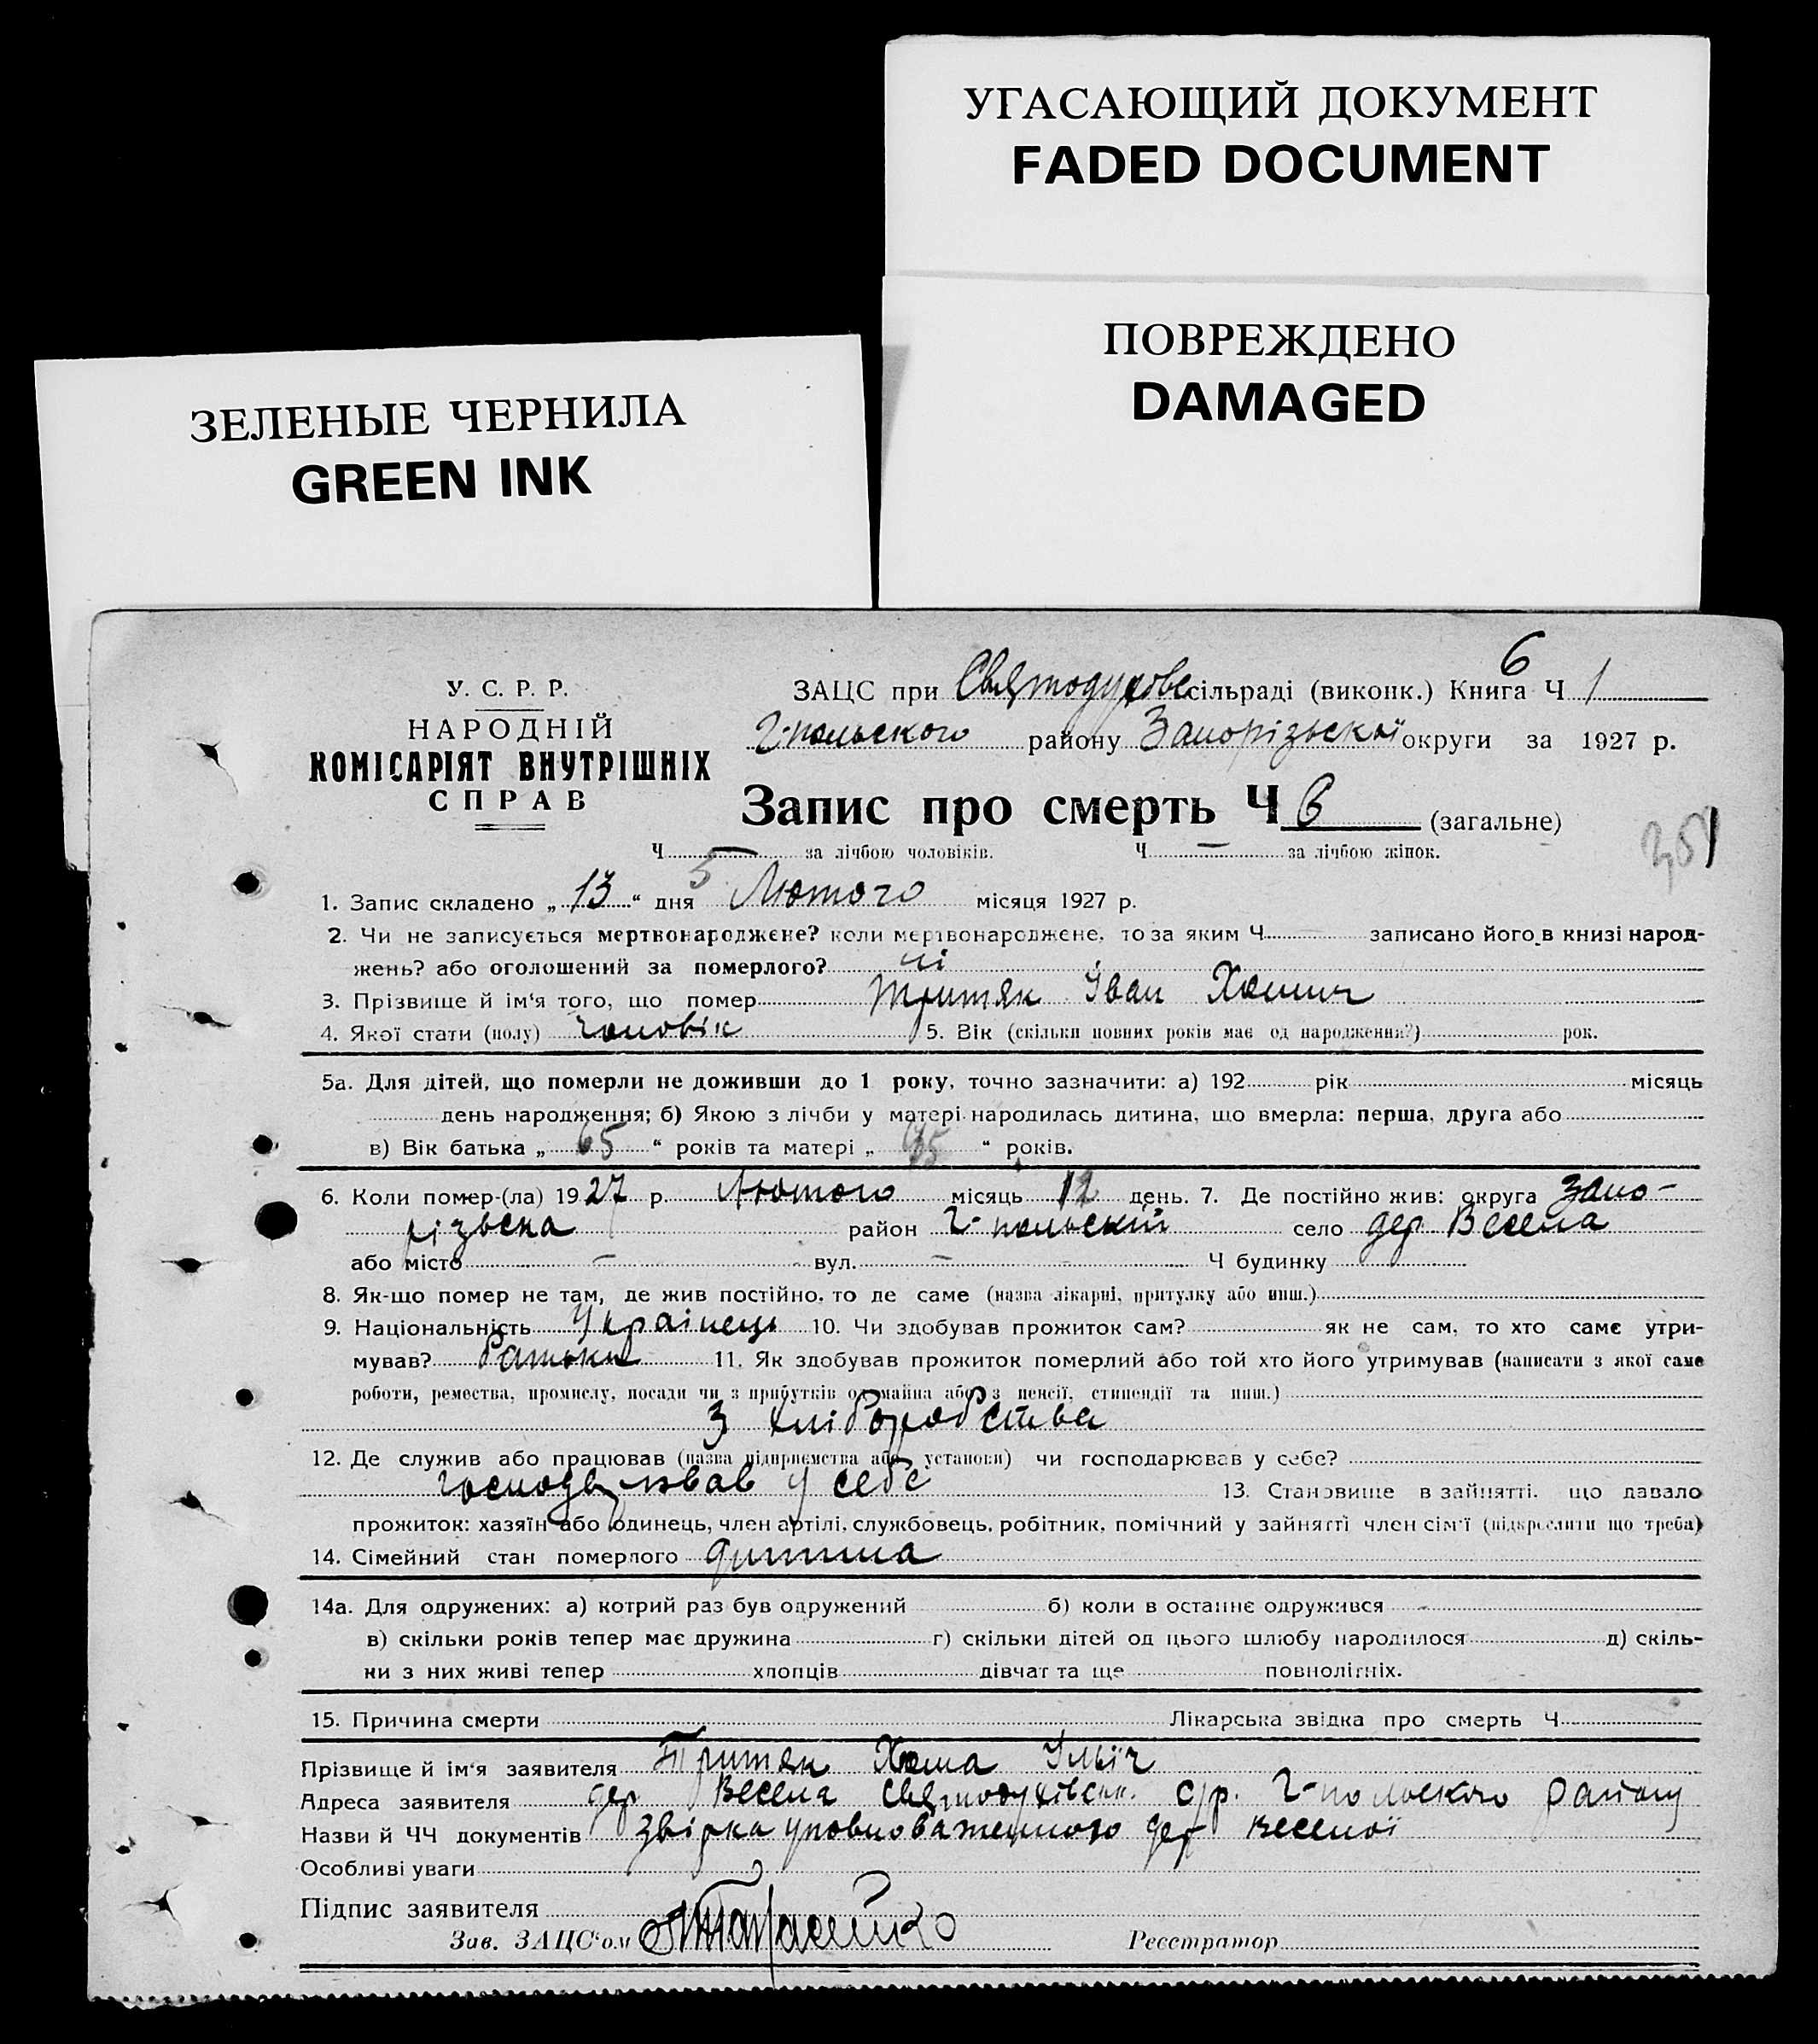 УГАСАЮЩИЙ ДОКУМЕНТ
FADED DOCUMENT
ПОВРЕЖДЕНО
DAMAGED
ЗЕЛЕНЫЕ ЧЕРНИЛА
GREEN INK
6
У. С. Р. Р.
НАРОДНІЙ
КОМІСАРІЯТ ВНУТРІШНІХ
СПРАВ
ЗАЦС при Святодухове сільраді (виконк.) Книга Ч 1
Г-польского району Запорізькой округи за 1927 р.
Запис про смерть Ч 6 (загальне)
351
Ч 5 за лічбою чоловіків. Ч — за лічбою жінок.
1. Запис складено „ 13 “ дня Лютого місяця 1927 р.
2. Чи не записується мертвонароджене? коли мертвонароджене, то за яким Ч записано його в книзі народ-
жень? або оголошений за померлого? ні
3. Прізвище й ім'я того, що помер Тритяк Іван Хомич
4. Якої стати (полу) чоловік 5. Вік (скільки повних років має од народження?) рок.
5а. Для дітей, що померли не доживши до 1 року, точно зазначити: а) 192 рік місяць
день народження; б) Якою з лічби у матері народилась дитина, що вмерла: перша, друга або
в) Вік батька „ 65 “ років та матері „ “ років.
6. Коли помер-(ла) 1927 р. Лютого місяць 12 день. 7. Де постійно жив: округа Запо-
різька район Г-польскій село дер Весела
або місто — вул. — Ч будинку
8. Як-що помер не там, де жив постійно, то де саме (назва лікарні, притулку або инш.)
9. Національність Українець 10. Чи здобував прожиток сам? як не сам, то хто саме утри-
мував? Батьки 11. Як здобував прожиток померлий або той хто його утримував (написати з якої саме
роботи, ремества, промислу, посади чи з прибутків од майна або з пенсії, стипендії та инш.)
З хліборобства
12. Де служив або працював (назва підприємства або установи) чи господарював у себе?
господарював у себе 13. Становище в зайнятті, що давало
прожиток: хазяїн або одинець, член артілі, службовець, робітник, помічний у зайнятті член сім'ї (підкреслити що треба)
14. Сімейний стан померлого дитина
14а. Для одружених: а) котрий раз був одружений б) коли в останнє одружився
в) скільки років тепер має дружина г) скільки дітей од цього шлюбу народилося д) скіль-
ки з них живі тепер хлопців дівчат та ще повнолітніх.
15. Причина смерти Лікарська звідка про смерть Ч
Прізвище й ім'я заявителя Тритяк Хома Ільїч
Адреса заявителя дер Весела Святодухівськ. с/р. Г-польского району
Назви й ЧЧ документів звірка уповноваженного дер Веселої
Особливі уваги
Підпис заявителя
Зав. ЗАЦС'ом Тарасенко Реєстратор